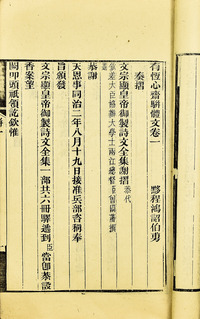 有恆心齋駢體文卷一
黟程鴻詔伯旉
奏摺
文宗顯皇帝御製詩文全集謝摺恭代
欽差大臣協辦大學士兩江總督臣曾國藩撰
奏爲恭謝
天恩事同治二年八月十九日接准兵部咨稱奉
旨頒發
文宗顯皇帝御製詩文全集一部共六冊驛遞到臣當卽恭設
香案望
闕叩頭祗領訖欽惟